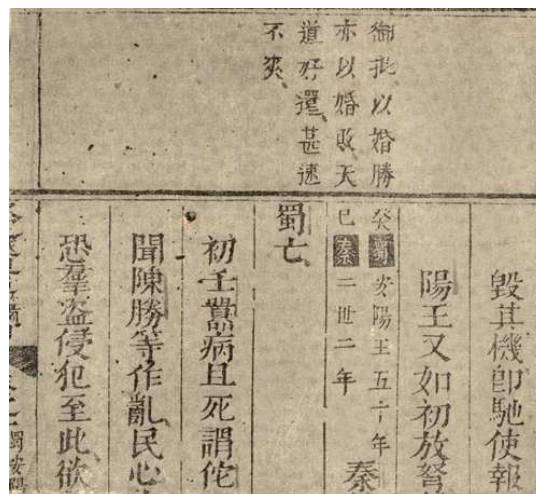 御批以婚勝
亦以婚敗天
道好還甚速
不爽
毀其機卽馳使報
陽王又如初放弩
癸蜀安陽王五十年
巳秦二世二年
秦
蜀亡
初壬嚻病且死謂佗
聞陳勝等作亂民心
恐羣盜侵犯至此欲
蜀安陽